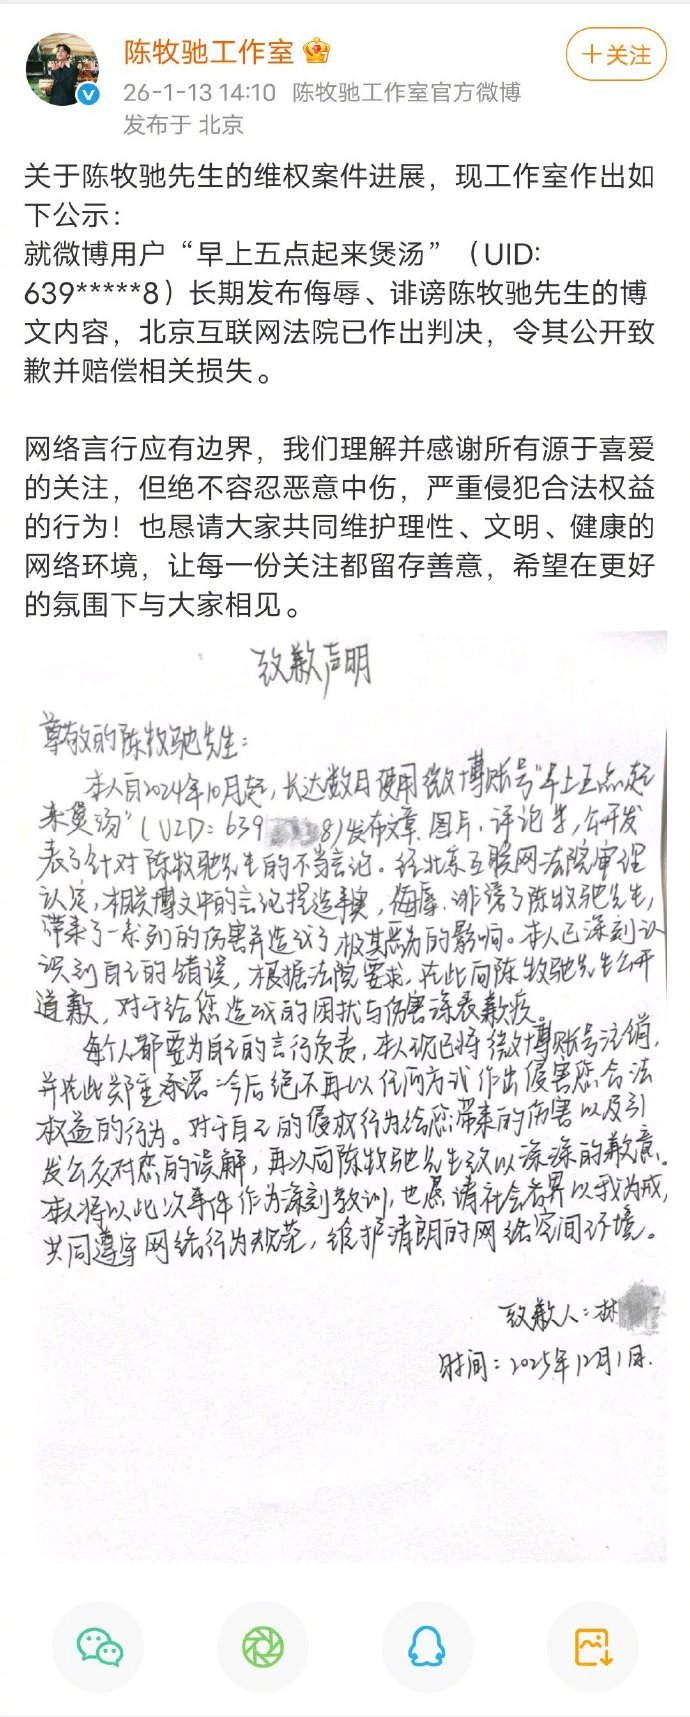 陈牧驰工作室
+关注
26-1-13 14:10 陈牧驰工作室官方微博
发布于 北京
关于陈牧驰先生的维权案件进展，现工作室作出如
下公示：
就微博用户“早上五点起来煲汤”（UID:
639*****8）长期发布侮辱、诽谤陈牧驰先生的博
文内容，北京互联网法院已作出判决，令其公开致
歉并赔偿相关损失。
网络言行应有边界，我们理解并感谢所有源于喜爱
的关注，但绝不容忍恶意中伤，严重侵犯合法权益
的行为！也恳请大家共同维护理性、文明、健康的
网络环境，让每一份关注都留存善意，希望在更好
的氛围下与大家相见。
致歉声明
尊敬的陈牧驰先生：
本人自2024年10月起，长达数日使用微博账号“早上五点起
来煲汤”（UID：639 8）发布文章、图片、评论等，公开发
表了针对陈牧驰先生的不当言论。经北京互联网法院审理
认定，相关博文中的言论捏造事实，侮辱、诽谤了陈牧驰先生，
带来了一系列的伤害并造成了极其恶劣的影响。本人已深刻认
识到自己的错误，根据法院要求，在此向陈牧驰先生公开
道歉，对于给您造成的困扰与伤害深表歉疚。
每个人都要为自己的言行负责，本人现已将微博账号注销，
并在此郑重承诺：今后绝不再以任何方式作出侵害您合法
权益的行为。对于自己的侵权行为给您带来的伤害以及引
发公众对您的误解，再次向陈牧驰先生致以深深的歉意。
本人将以此次事件作为深刻教训，也愿请社会各界以我为戒，
共同遵守网络行为规范，维护清朗的网络空间环境。
致歉人：林
时间：2025年12月1日.